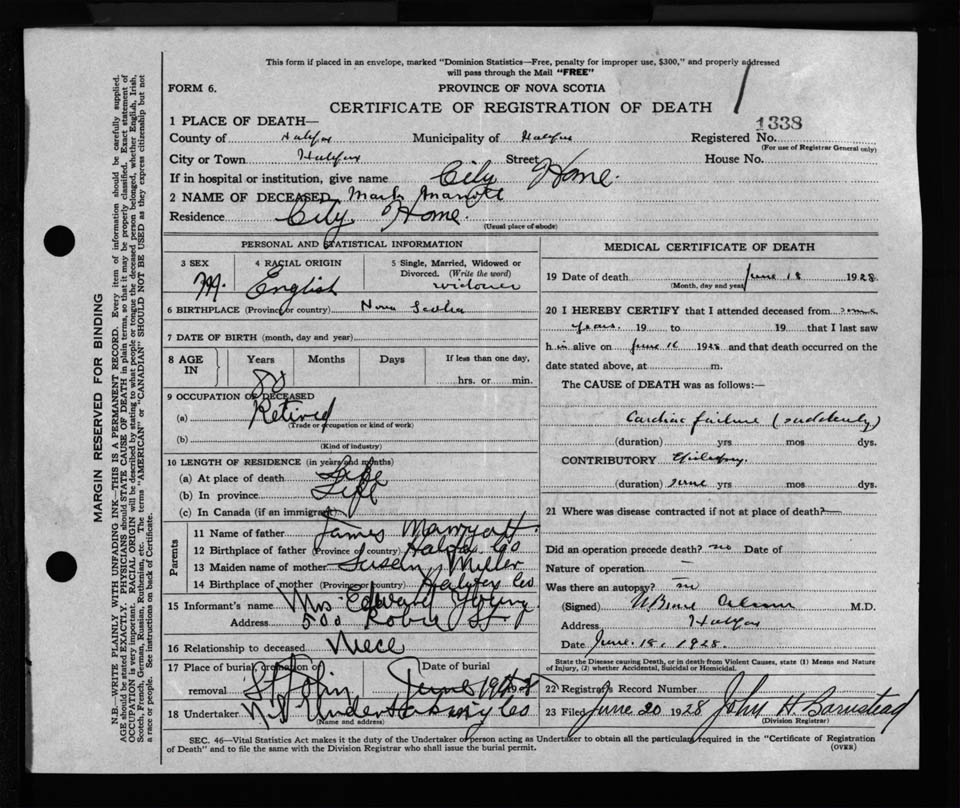 This form if placed in an envelope, marked "Dominion Statistics—Free, penalty for improper use, $300," and properly addressed
will pass through the Mail "FREE"
FORM 6.
PROVINCE OF NOVA SCOTIA
CERTIFICATE OF REGISTRATION OF DEATH
1 PLACE OF DEATH—
1338
County of Halifax Municipality of Halifax Registered No.
(For use of Registrar General only)
City or Town Halifax Street House No.
If in hospital or institution, give name City Home.
2 NAME OF DECEASED Mark
Residence City Home.
(Usual place of abode)
PERSONAL AND STATISTICAL INFORMATION
3 SEX 4 RACIAL ORIGIN 5 Single, Married, Widowed or
Divorced. (Write the word)
M. English widower
6 BIRTHPLACE (Province or country) Nova Scotia
7 DATE OF BIRTH (month, day and year)
8 AGE IN Years Months Days If less than one day,
80 hrs. or min.
9 OCCUPATION OF DECEASED
(a) Retired
(Trade or occupation or kind of work)
(b)
(Kind of industry)
10 LENGTH OF RESIDENCE (in years and months)
(a) At place of death Life
(b) In province Life
(c) In Canada (if an immigrant)
Parents
11 Name of father James
12 Birthplace of father (Province or country) Halifax Co
13 Maiden name of mother Susan Miller
14 Birthplace of mother (Province or country) Halifax Co
15 Informant's name Mrs Edward Young
Address 500 Robie St
16 Relationship to deceased Niece
17 Place of burial, cremation or Date of burial
removal St John June 19th 1928
18 Undertaker N.S Undertaking Co
(Name and address)
MEDICAL CERTIFICATE OF DEATH
19 Date of death June 18 1928
(Month, day and year)
20 I HEREBY CERTIFY that I attended deceased from some
years. 19 to 19 that I last saw
him alive on June 16 1928 and that death occurred on the
date stated above, at m.
The CAUSE of DEATH was as follows:—
Cardiac failure (suddenly)
(duration) yrs mos dys.
CONTRIBUTORY Epilepsy.
(duration) yrs mos dys.
21 Where was disease contracted if not at place of death?
Did an operation precede death? no Date of
Nature of operation
Was there an autopsy? no
(Signed) M.D.
Address Halifax
Date June. 18. 1928.
State the Disease causing Death, or in death from Violent Causes, state (1) Means and Nature
of Injury, (2) whether Accidental, Suicidal or Homicidal.
22 Registrar's Record Number
23 Filed June 20 1928 John H. Barnstead
(Division Registrar)
SEC. 46—Vital Statistics Act makes it the duty of the Undertaker or person acting as Undertaker to obtain all the particulars required in the "Certificate of Registration
of Death" and to file the same with the Division Registrar who shall issue the burial permit.
(OVER)
MARGIN RESERVED FOR BINDING
N.B.—WRITE PLAINLY WITH UNFADING INK—THIS IS A PERMANENT RECORD. Every item of information should be carefully supplied.
AGE should be stated EXACTLY. PHYSICIANS should STATE CAUSE OF DEATH in plain terms, so that it may be properly classified. Exact statement of
OCCUPATION is very important. RACIAL ORIGIN will be described by stating to what people or tongue the deceased person belonged, whether English, Irish,
Scotch, French, German, Russian, Ruthenian, etc. The terms "AMERICAN" or "CANADIAN" SHOULD NOT BE USED as they express citizenship but not
a race or people. See instructions on back of Certificate.